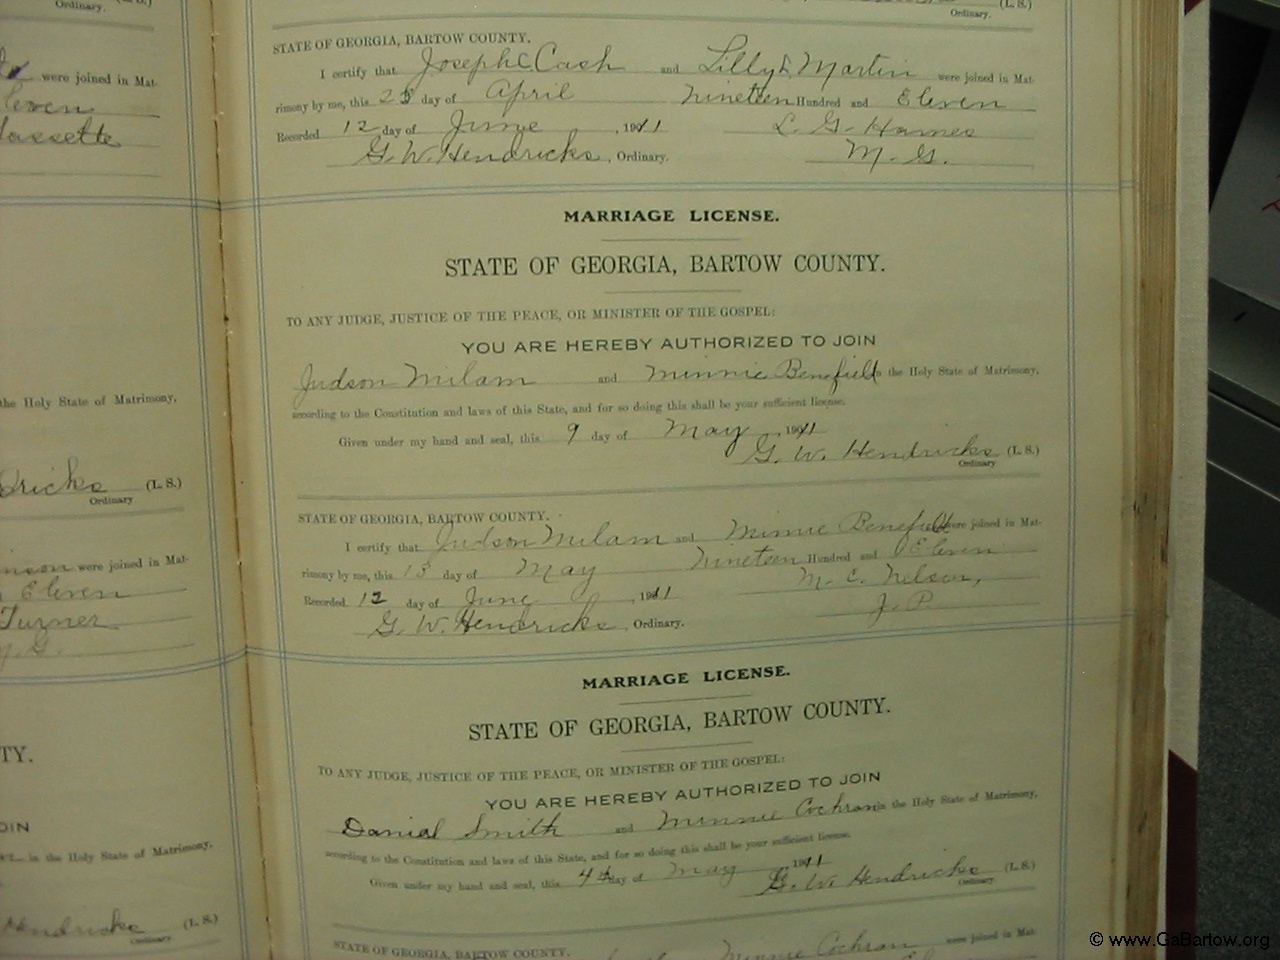 Ordinary.
(L. S.)
Ordinary.
(L. S.)
were joined in Mat-
STATE OF GEORGIA, BARTOW COUNTY.
I certify that Joseph C Cash and Lilly L. Martin were joined in Mat-
rimony by me, this day of April Nineteen Hundred and Eleven
Recorded 12 day of June, 1911 L. G. Hames
G. W. Hendricks, Ordinary. M. G.
MARRIAGE LICENSE.
STATE OF GEORGIA, BARTOW COUNTY.
TO ANY JUDGE, JUSTICE OF THE PEACE, OR MINISTER OF THE GOSPEL:
YOU ARE HEREBY AUTHORIZED TO JOIN
Judson Milam and Minnie Benefield in the Holy State of Matrimony,
according to the Constitution and laws of this State, and for so doing this shall be your sufficient license.
Given under my hand and seal, this 9 day of May, 1911
G. W. Hendricks (L. S.)
Ordinary
STATE OF GEORGIA, BARTOW COUNTY.
I certify that Judson Milam and Minnie Benefield were joined in Mat-
rimony by me, this day of May Nineteen Hundred and Eleven
Recorded 12 day of June, 1911 M. C. Nelson,
G. W. Hendricks, Ordinary. J. P.
MARRIAGE LICENSE.
STATE OF GEORGIA, BARTOW COUNTY.
TO ANY JUDGE, JUSTICE OF THE PEACE, OR MINISTER OF THE GOSPEL:
YOU ARE HEREBY AUTHORIZED TO JOIN
Daniel Smith and Minnie Cochran in the Holy State of Matrimony,
according to the Constitution and laws of this State, and for so doing this shall be your sufficient license.
Given under my hand and seal, this 4th day of May, 1911
G. W. Hendricks (L. S.)
Ordinary
STATE OF GEORGIA, BARTOW COUNTY.
Minnie Cochran were joined in Mat-
the Holy State of Matrimony,
(L. S.)
Ordinary
were joined in Mat-
Eleven
Turner
in the Holy State of Matrimony,
Hendricks (L. S.)
Ordinary
© www.GaBartow.org